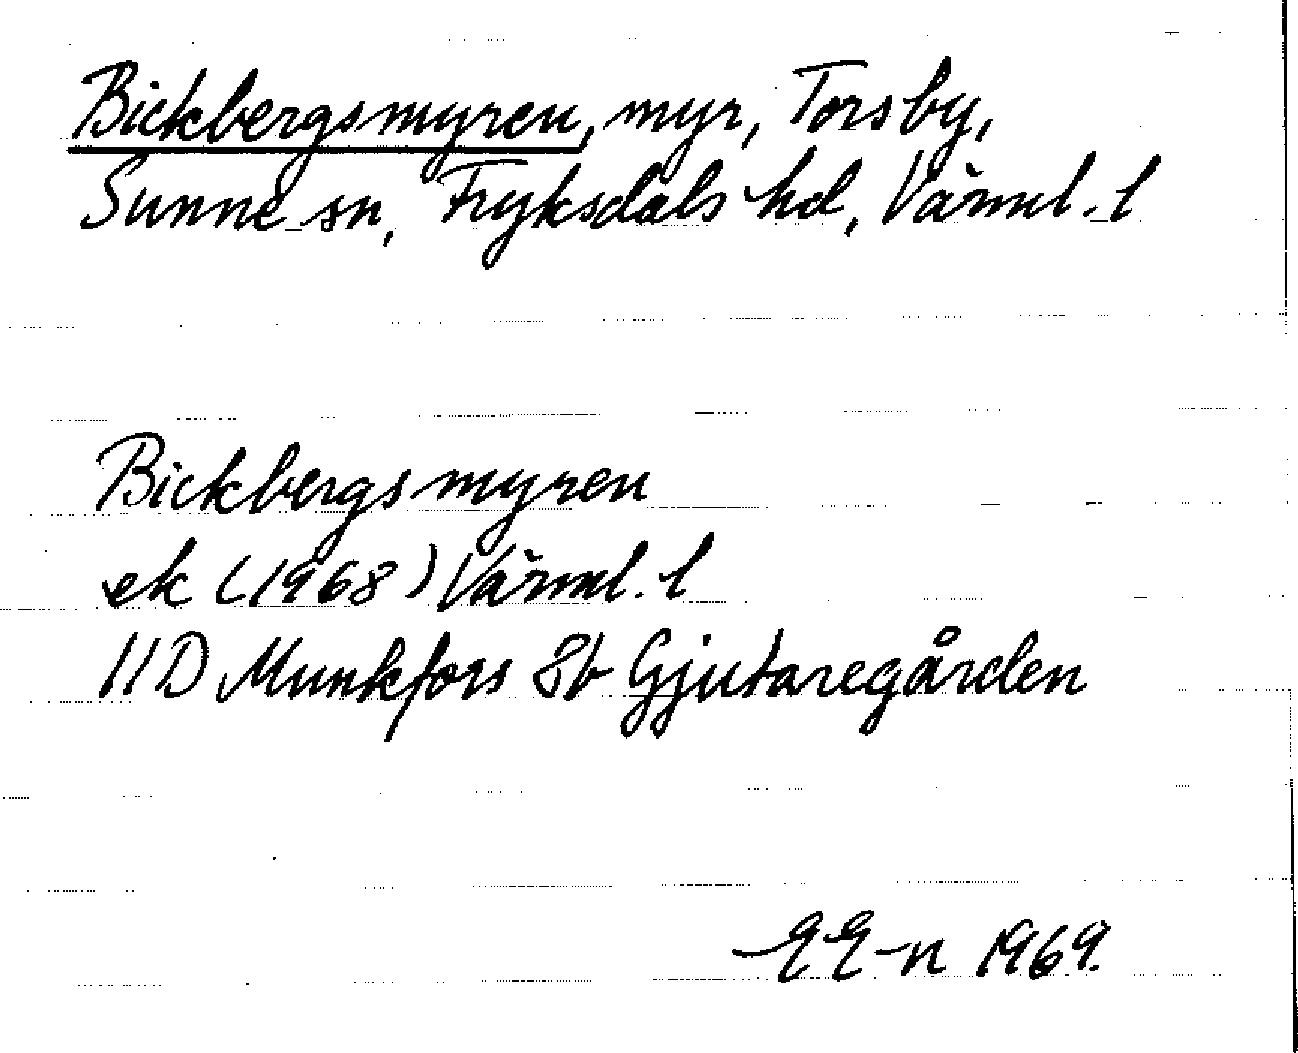 Bickbergsmyren, myr, Torsby,
Sunne sn, Fryksdals hd, Värml. l
Bickbergsmyren
ek (1968) Värml. l
11D Munkfors 8b Gjutaregården
EE-n 1969.